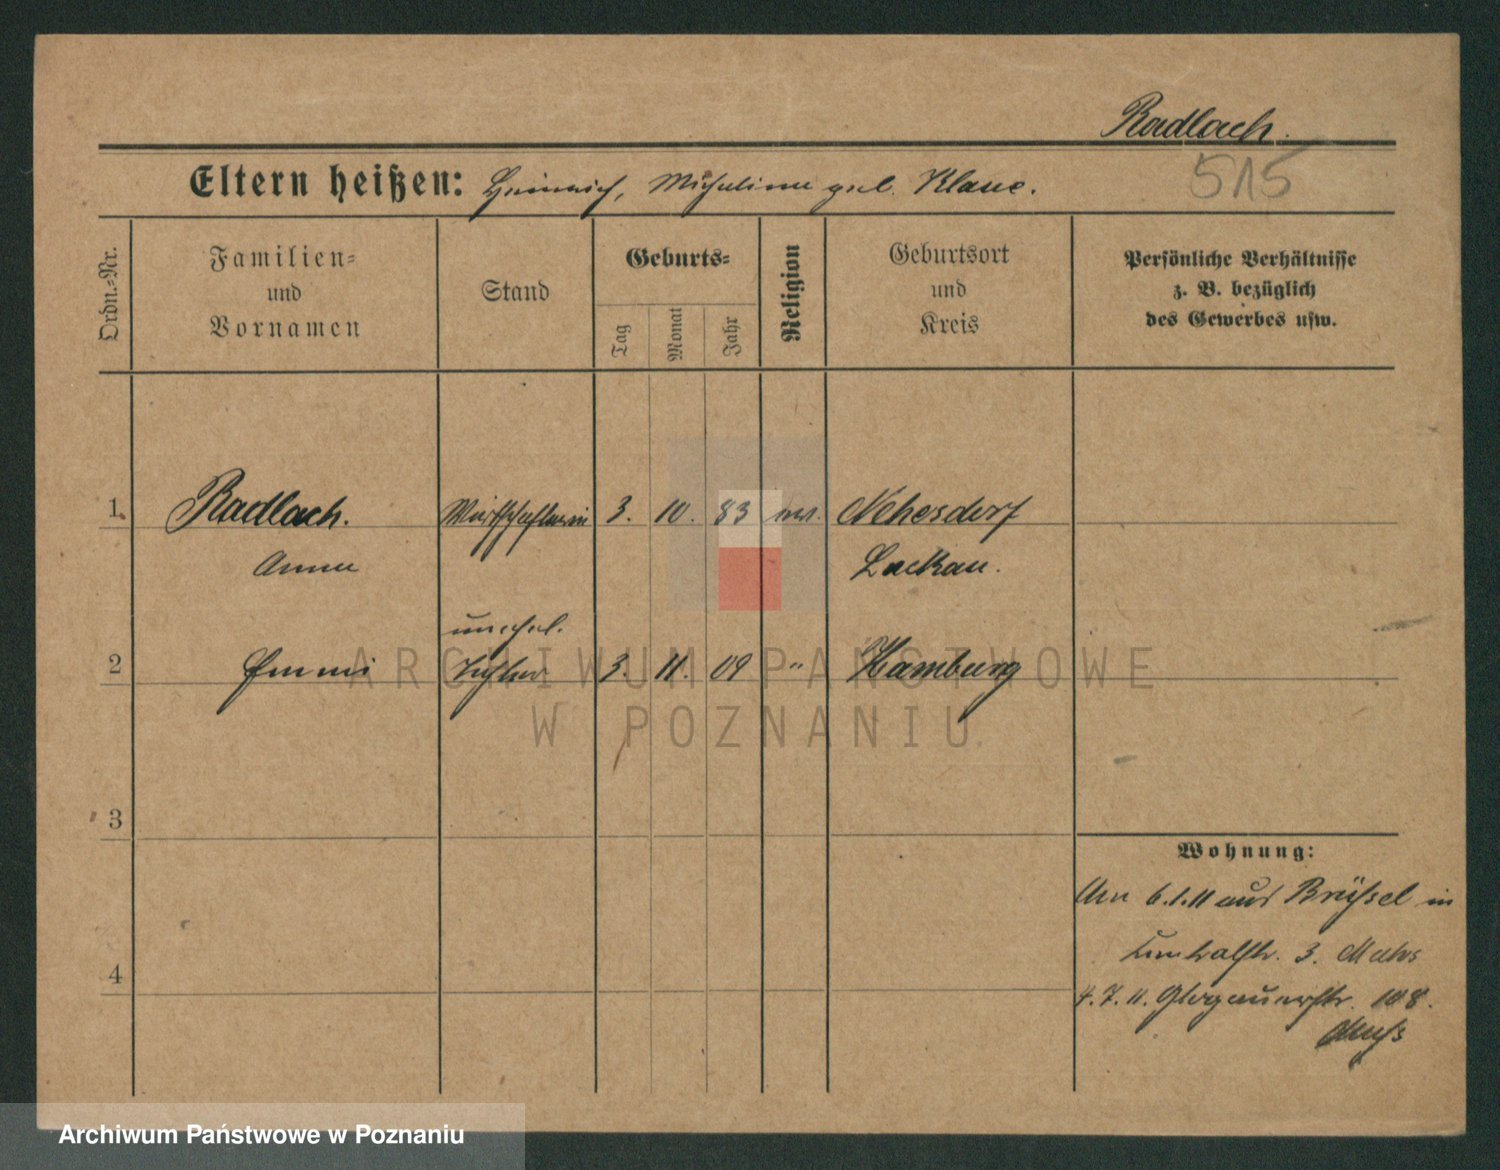 Radlach.
515
Eltern heißen: Heinrich, Michelina geb. Klaue.
Ordn.-Nr.
Familien-
und
Vornamen
Stand
Geburts-
Tag
Monat
Jahr
Religion
Geburtsort
und
Kreis
Persönliche Verhältnisse
z. B. bezüglich
des Gewerbes usw.
1. Radlach. Wirtschafterin 3. 10. 83 ev. Nehesdorf
Anna Luckau.
unehel.
2 Emmi Tochter 3. 11. 09 " Hamburg
ARCHIWUM PAŃSTWOWE
W POZNANIU
3
Wohnung:
Am 6.1.11 aus Brüssel in
3.
4
4.7.11. Glogauerstr. 108.
Archiwum Państwowe w Poznaniu